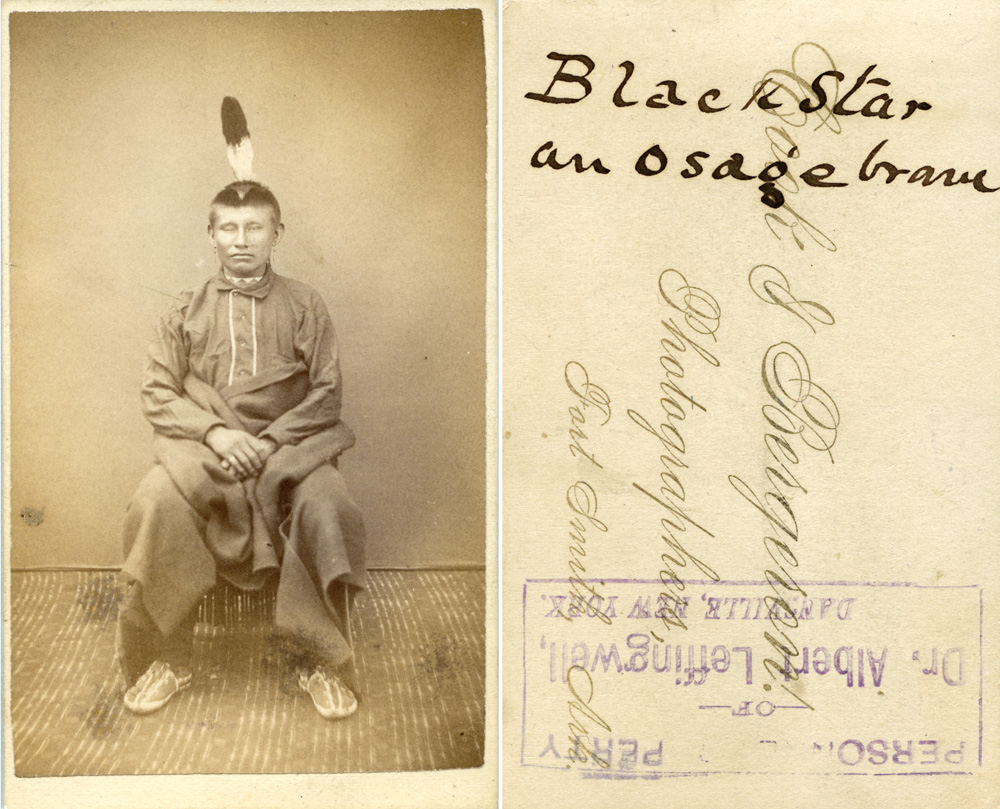 Black Star
an Osage brave
Cook & Bergeven!
Photographers,
Fort Smith, Ark.
PERSO PERTY
—OF—
Dr. Albert Leffingwell,
DANSVILLE, NEW YORK.